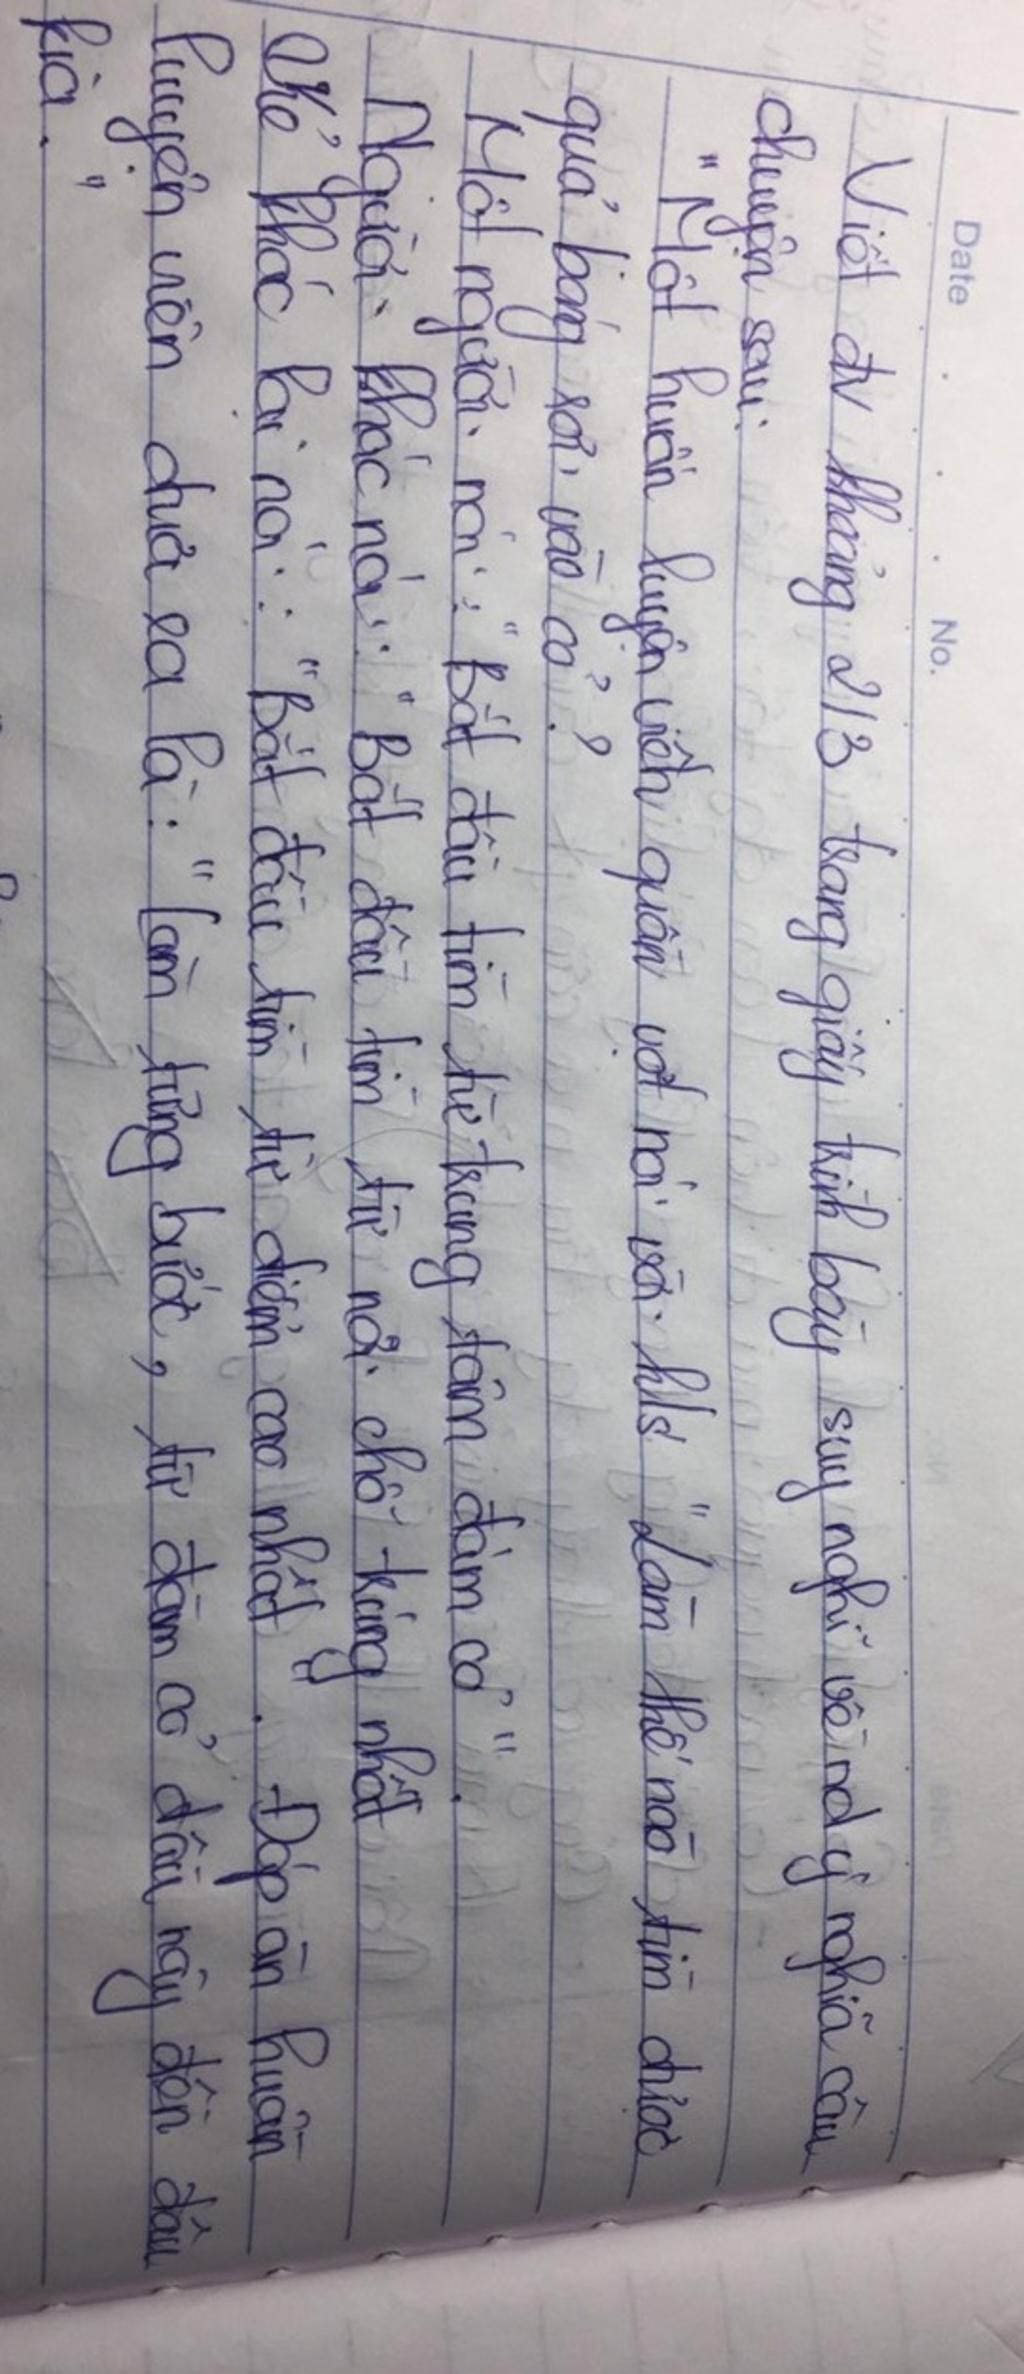 Date No.
Viết đv khoảng 2/3 trang giấy trình bày suy nghĩ về nd ý nghĩa câu
chuyện sau:
"Một huấn luyện viên quần vợt nói với hls "Làm thế nào tìm được
quả bóng rơi vào cỏ?
Một người nói: "Bắt đầu tìm từ trung tâm đám cỏ".
Người khác nói: "Bắt đầu tìm từ nơi chỗ trũng nhất
Kẻ khác lại nói: "Bắt đầu tìm từ điểm cao nhất". Đáp án huấn
luyện viên đưa ra là: "Làm từng bước, từ đám cỏ đầu này đến đầu
kia."